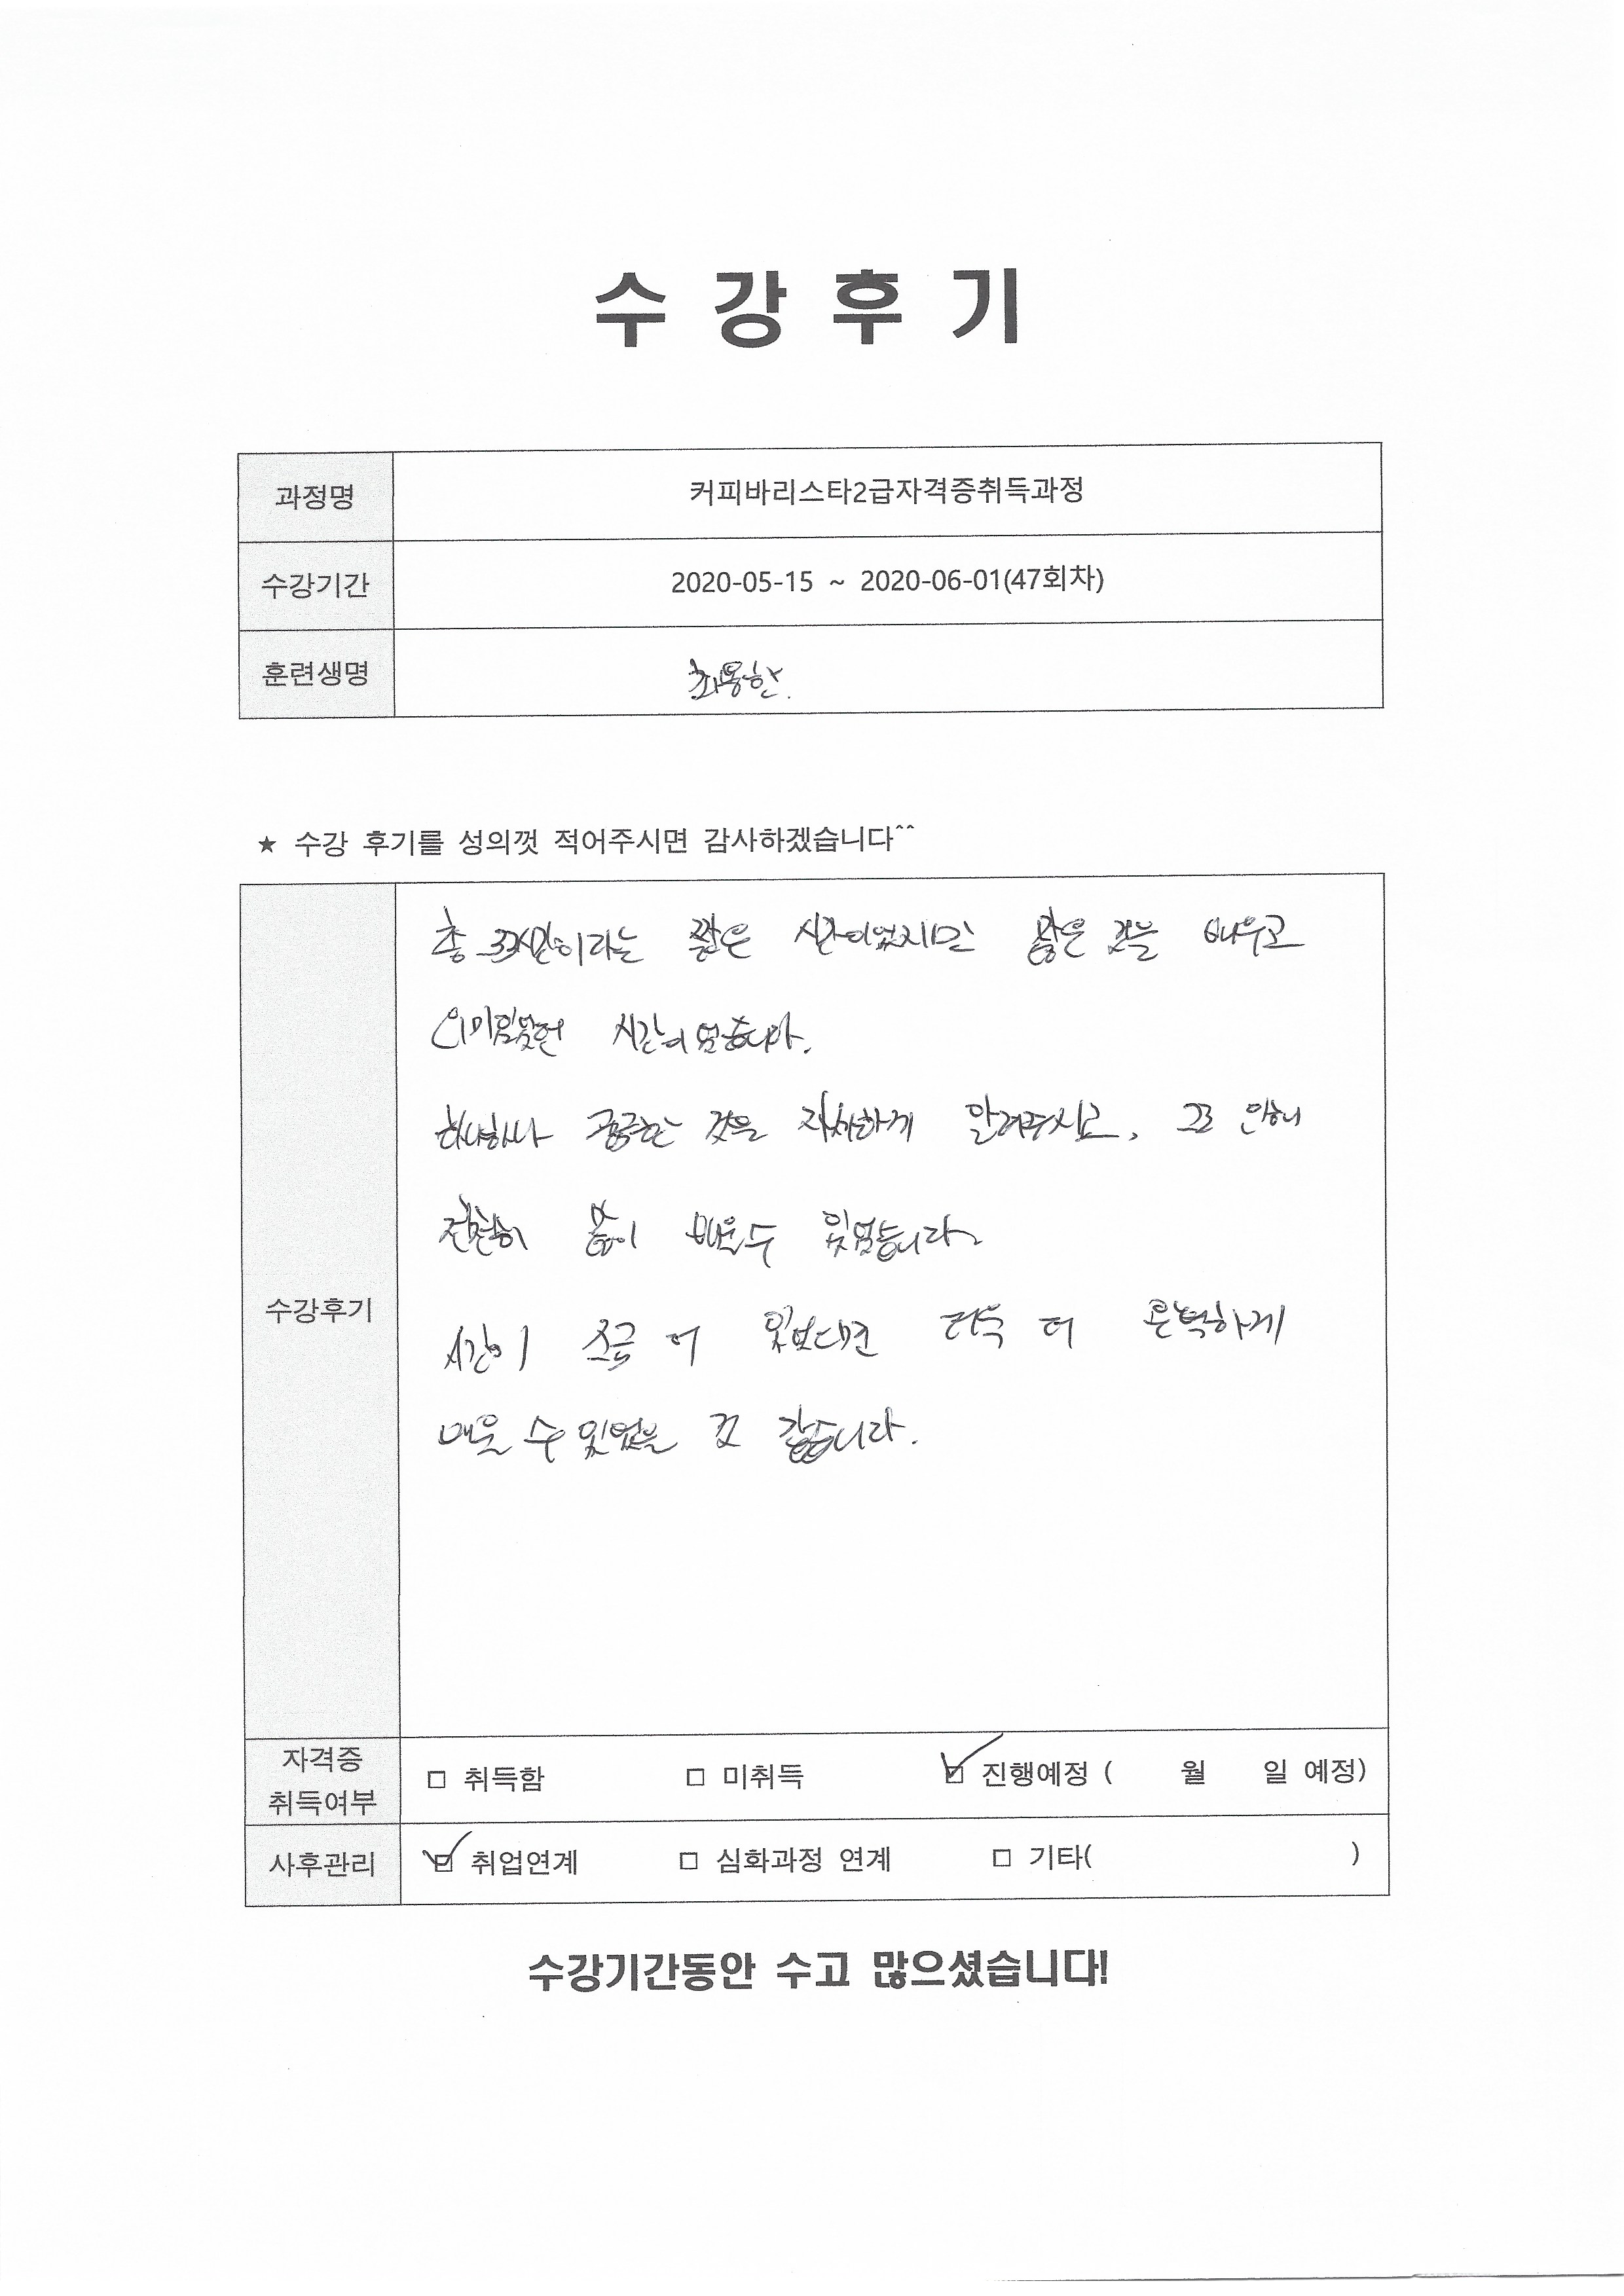 수강후기
과정명 커피바리스타2급자격증취득과정
수강기간 2020-05-15 ~ 2020-06-01(47회차)
훈련생명 최용한.
★ 수강 후기를 성의껏 적어주시면 감사하겠습니다^^
수강후기
총 33시간이라는 짧은 시간이었지만 많은 것을 배우고
의미있었던 시간이었습니다.
하나하나 궁금한 것을 자세하게 알려주시고,
천천히 많이 배울수 있었습니다.
시간이 조금 더 있었다면 더욱 더 완벽하게
배울 수 있었을 것 같습니다.
자격증 취득여부 □ 취득함 □ 미취득 ☑ 진행예정 ( 월 일 예정)
사후관리 ☑ 취업연계 □ 심화과정 연계 □ 기타( )
수강기간동안 수고 많으셨습니다!